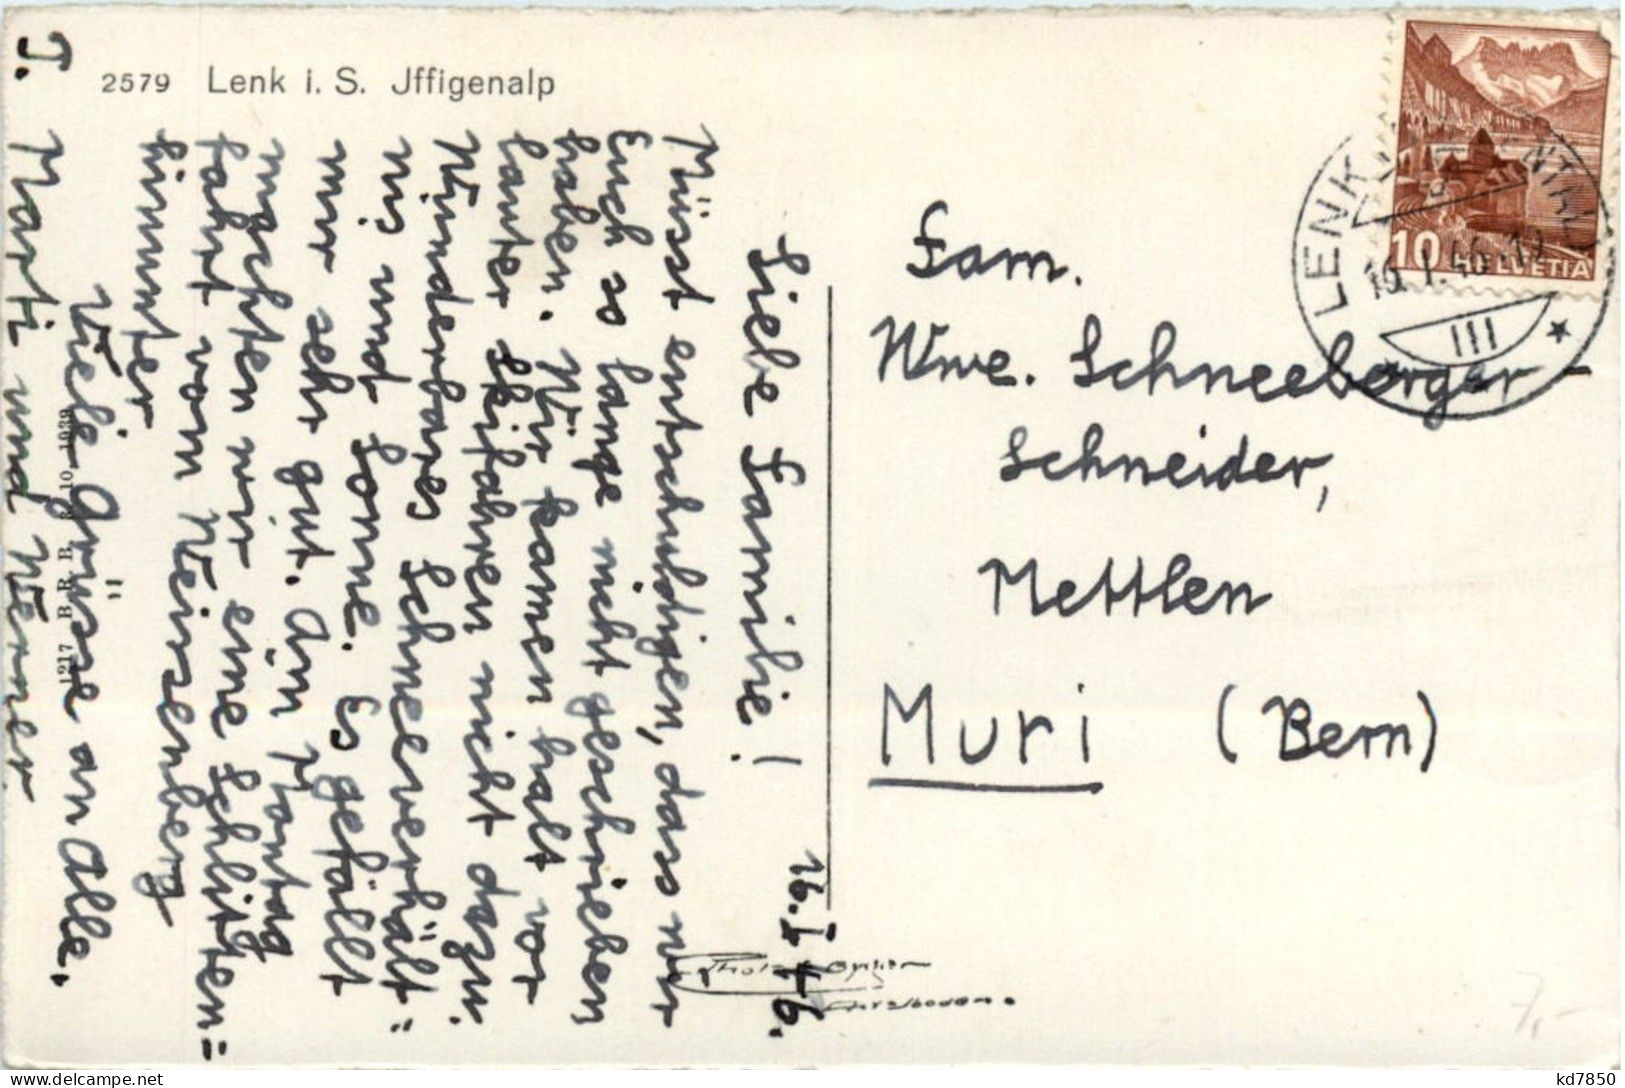 2579 Lenk i. S. Jffigenalp
16. I 46.
Liebe Familie!
Müsst entschuldigen, dass wir
Euch so lange nicht geschrieben
haben. Wir kamen halt vor
lauter Skifahren nicht dazu.
Wunderbares Schneeverhält-
nis und Sonne. Es gefällt
mir sehr gut. Am Montag
machten wir eine Schlitten=
fahrt vom Weissenberg
hinunter
Viele Grüsse an Alle.
J. Marti und Werner
1217 B R B 3. 10. 1939
Fam.
Wwe. Schneeberger-
Schneider,
Mettlen
Muri (Bern)
10 HELVETIA
LENK
16. I. 46.-12
III
7,-
kd7850